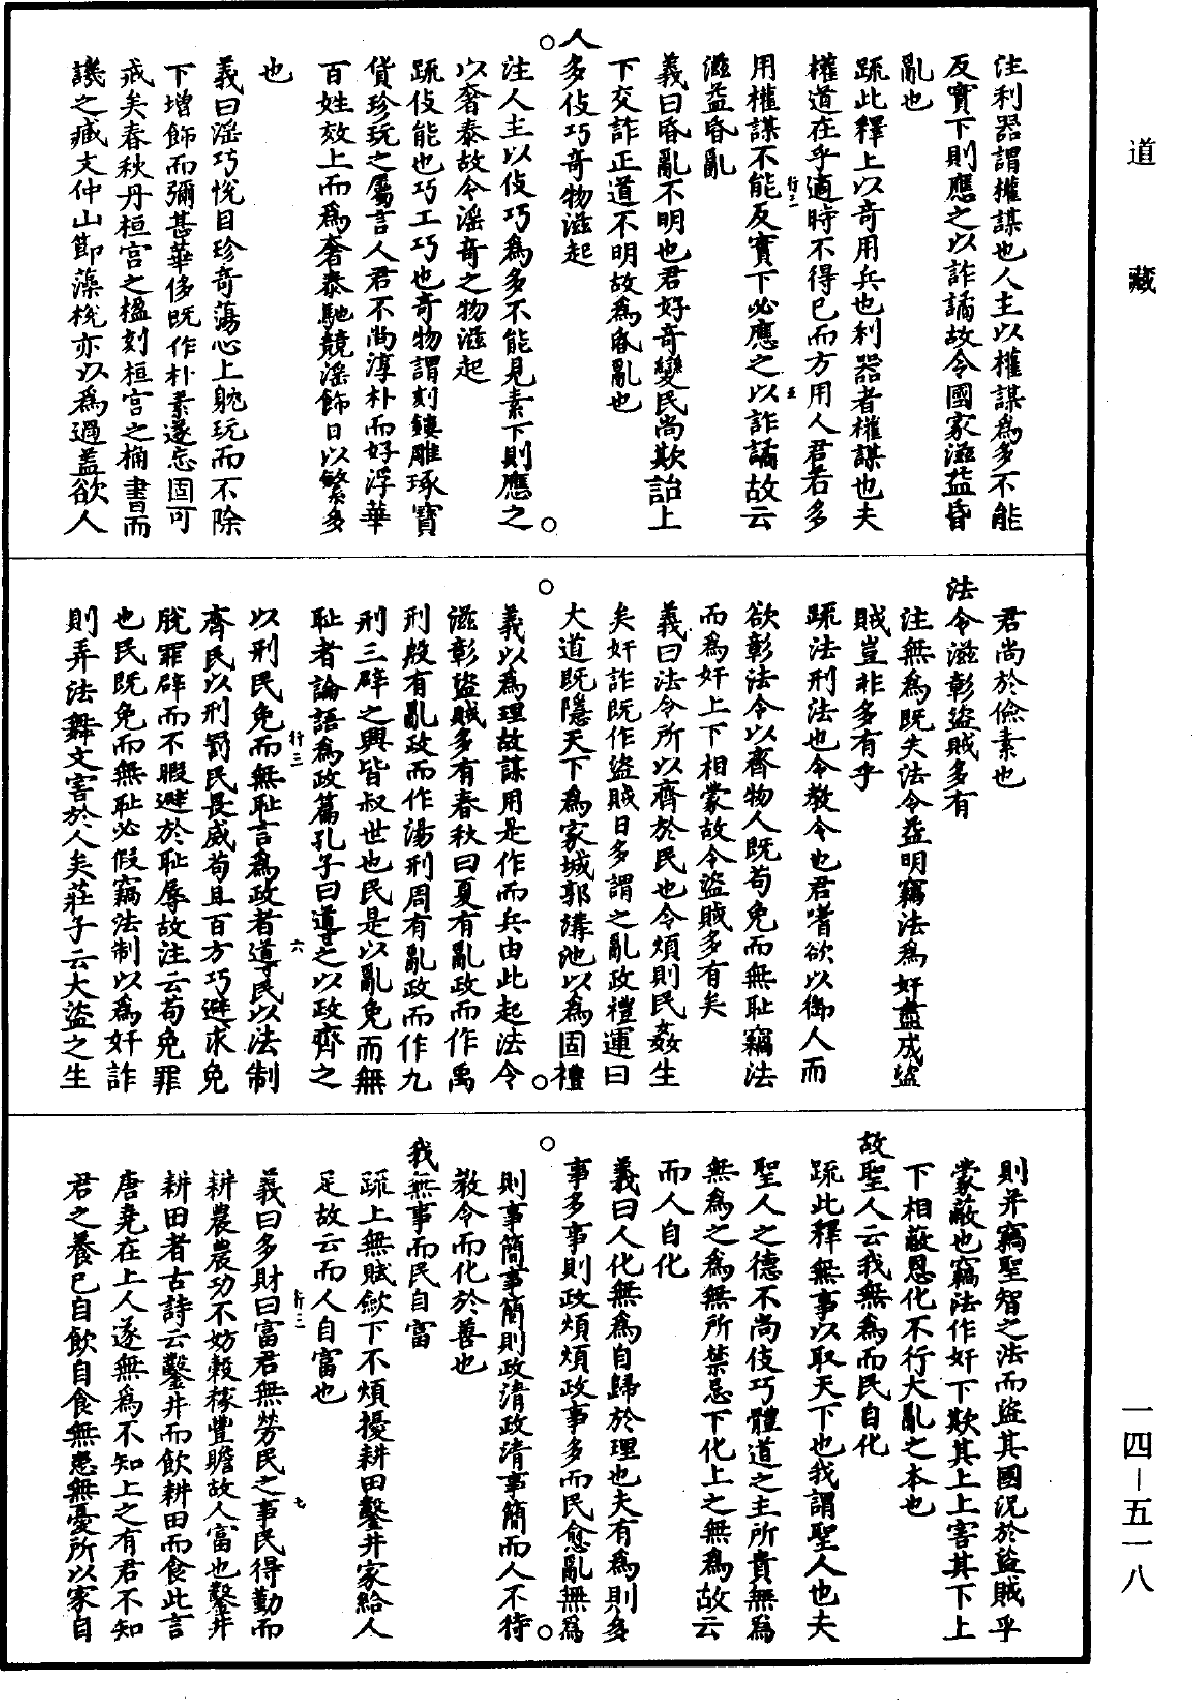 道藏
一四—五一八
注利器謂權謀也人主以權謀為多不能
反實下則應之以詐譎故令國家滋益昏
亂也
疏此釋上以奇用兵也利器者權謀也夫
權道在乎適時不得已而方用人君若多
用權謀不能反實下必應之以詐譎故云
滋益昏亂
義曰昏亂不明也君好奇變民尚欺詒上
下交詐正道不明故為昏亂也
人多伎巧奇物滋起
注人主以伎巧為多不能見素下則應之
以奢泰故令滛奇之物滋起
疏伎能也巧工巧也奇物謂刻鏤雕琢寶
貨珍玩之屬言人君不尚淳朴而好浮華
百姓效上而為奢泰馳競滛飾日以繁多
也
義曰滛巧悅目珍奇蕩心上躭玩而不除
下增飾而彌甚華侈既作朴素遂忘固可
戒矣春秋丹桓宮之楹刻桓宮之桷書而
譏之臧文仲山節藻梲亦以為過蓋欲人
君尚於儉素也
法令滋彰盜賊多有
注無為既失法令益明竊法為奸盡成盜
賊豈非多有乎
疏法刑法也令教令也君嗜欲以御人而
欲彰法令以齊物人既苟免而無恥竊法
而為奸上下相蒙故令盜賊多有矣
義曰法令所以齊於民也令煩則民姦生
矣奸詐既作盜賊日多謂之亂政禮運曰
大道既隱天下為家城郭溝池以為固禮
義以為理故謀用是作而兵由此起法令
滋彰盜賊多有春秋曰夏有亂政而作禹
刑殷有亂政而作湯刑周有亂政而作九
刑三辟之興皆叔世也民是以亂免而無
恥者論語為政篇孔子曰導之以政齊之
以刑民免而無恥言為政者導民以法制
齊民以刑罰民畏威苟且百方巧避求免
脫罪辟而不暇避於恥辱故注云苟免罪
也民既免而無恥必假竊法制以為奸詐
則弄法舞文害於人矣莊子云大盜之生
則并竊聖智之法而盜其國況於盜賊乎
蒙蔽也竊法作奸下欺其上上害其下上
下相蔽恩化不行大亂之本也
故聖人云我無為而民自化
疏此釋無事以取天下也我謂聖人也夫
聖人之德不尚伎巧體道之主所貴無為
無為之為無所禁忌下化上之無為故云
而人自化
義曰人化無為自歸於理也夫有為則多
事多事則政煩煩政事多而民愈亂無為
則事簡事簡則政清政清事簡而人不待
教令而化於善也
我無事而民自富
疏上無賦歛下不煩擾耕田鑿井家給人
足故云而人自富也
義曰多財曰富君無勞民之事民得勤而
耕農農功不妨穀稼豐贍故人富也鑿井
耕田者古詩云鑿井而飲耕田而食此言
唐堯在上人遂無為不知上之有君不知
君之養已自飲自食無患無憂所以家自